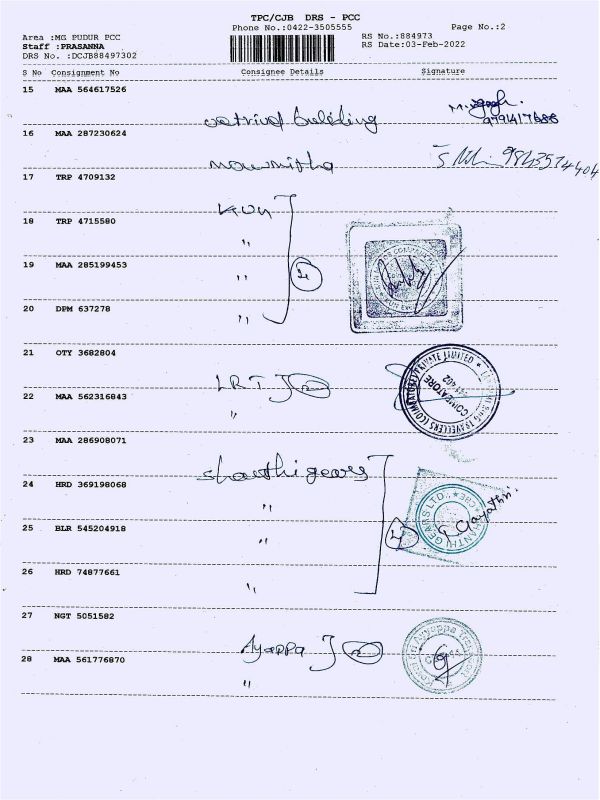 TPC/CJB DRS - PCC
Phone No.:0422-3505555 Page No.:2
Area :MG PUDUR PCC RS No.:884973
Staff :PRASANNA RS Date:03-Feb-2022
DRS No. :DCJB88497302
S No Consignment No Consignee Details Signature
15 MAA 564617526
building
16 MAA 287230624
17 TRP 4709132
18 TRP 4715580
"
19 MAA 285199453
"
20 DPM 637278
"
21 OTY 3682804
LRT 2
22 MAA 562316843
"
COIMBATORE
TRAVELLERS (COIMBATORE) PRIVATE LIMITED
23 MAA 286908071
shanthi gears
24 HRD 369198068
"
SHANTHI GEARS LTD.
G. Gayathri
25 BLR 545204918
" 4
26 HRD 74877661
"
27 NGT 5051582
Ayappa 2
28 MAA 561776870
"